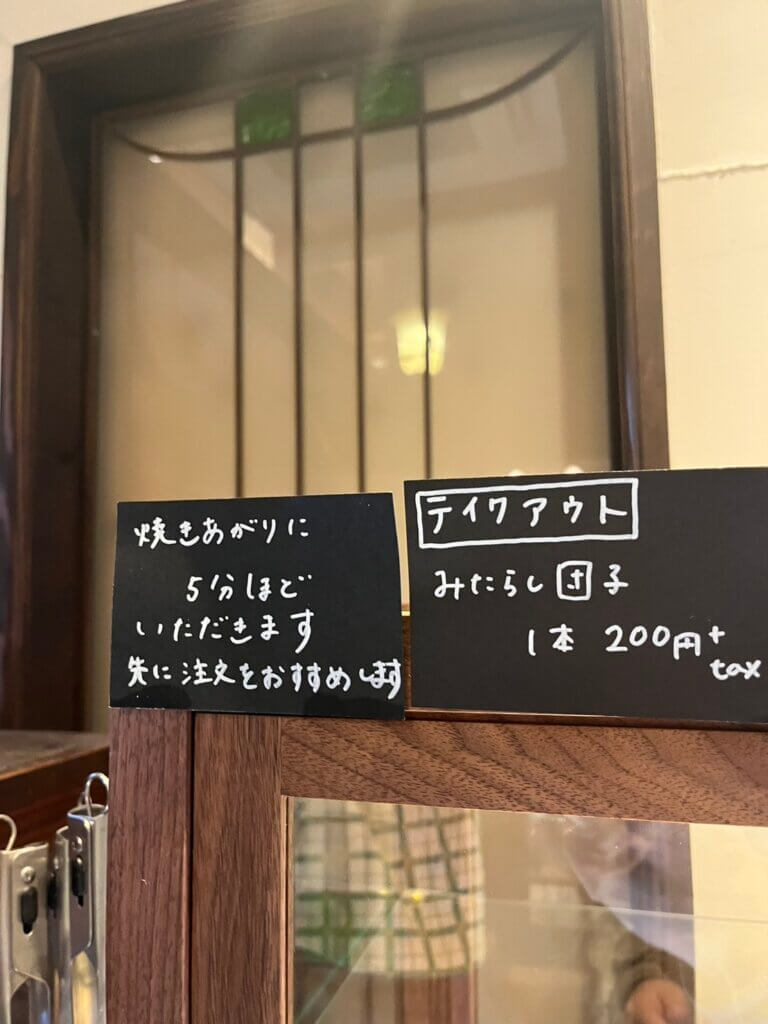 焼きあがりに
5分ほど
いただきます
先に注文をおすすめします
テイクアウト
みたらし団子
1本 200円+
tax